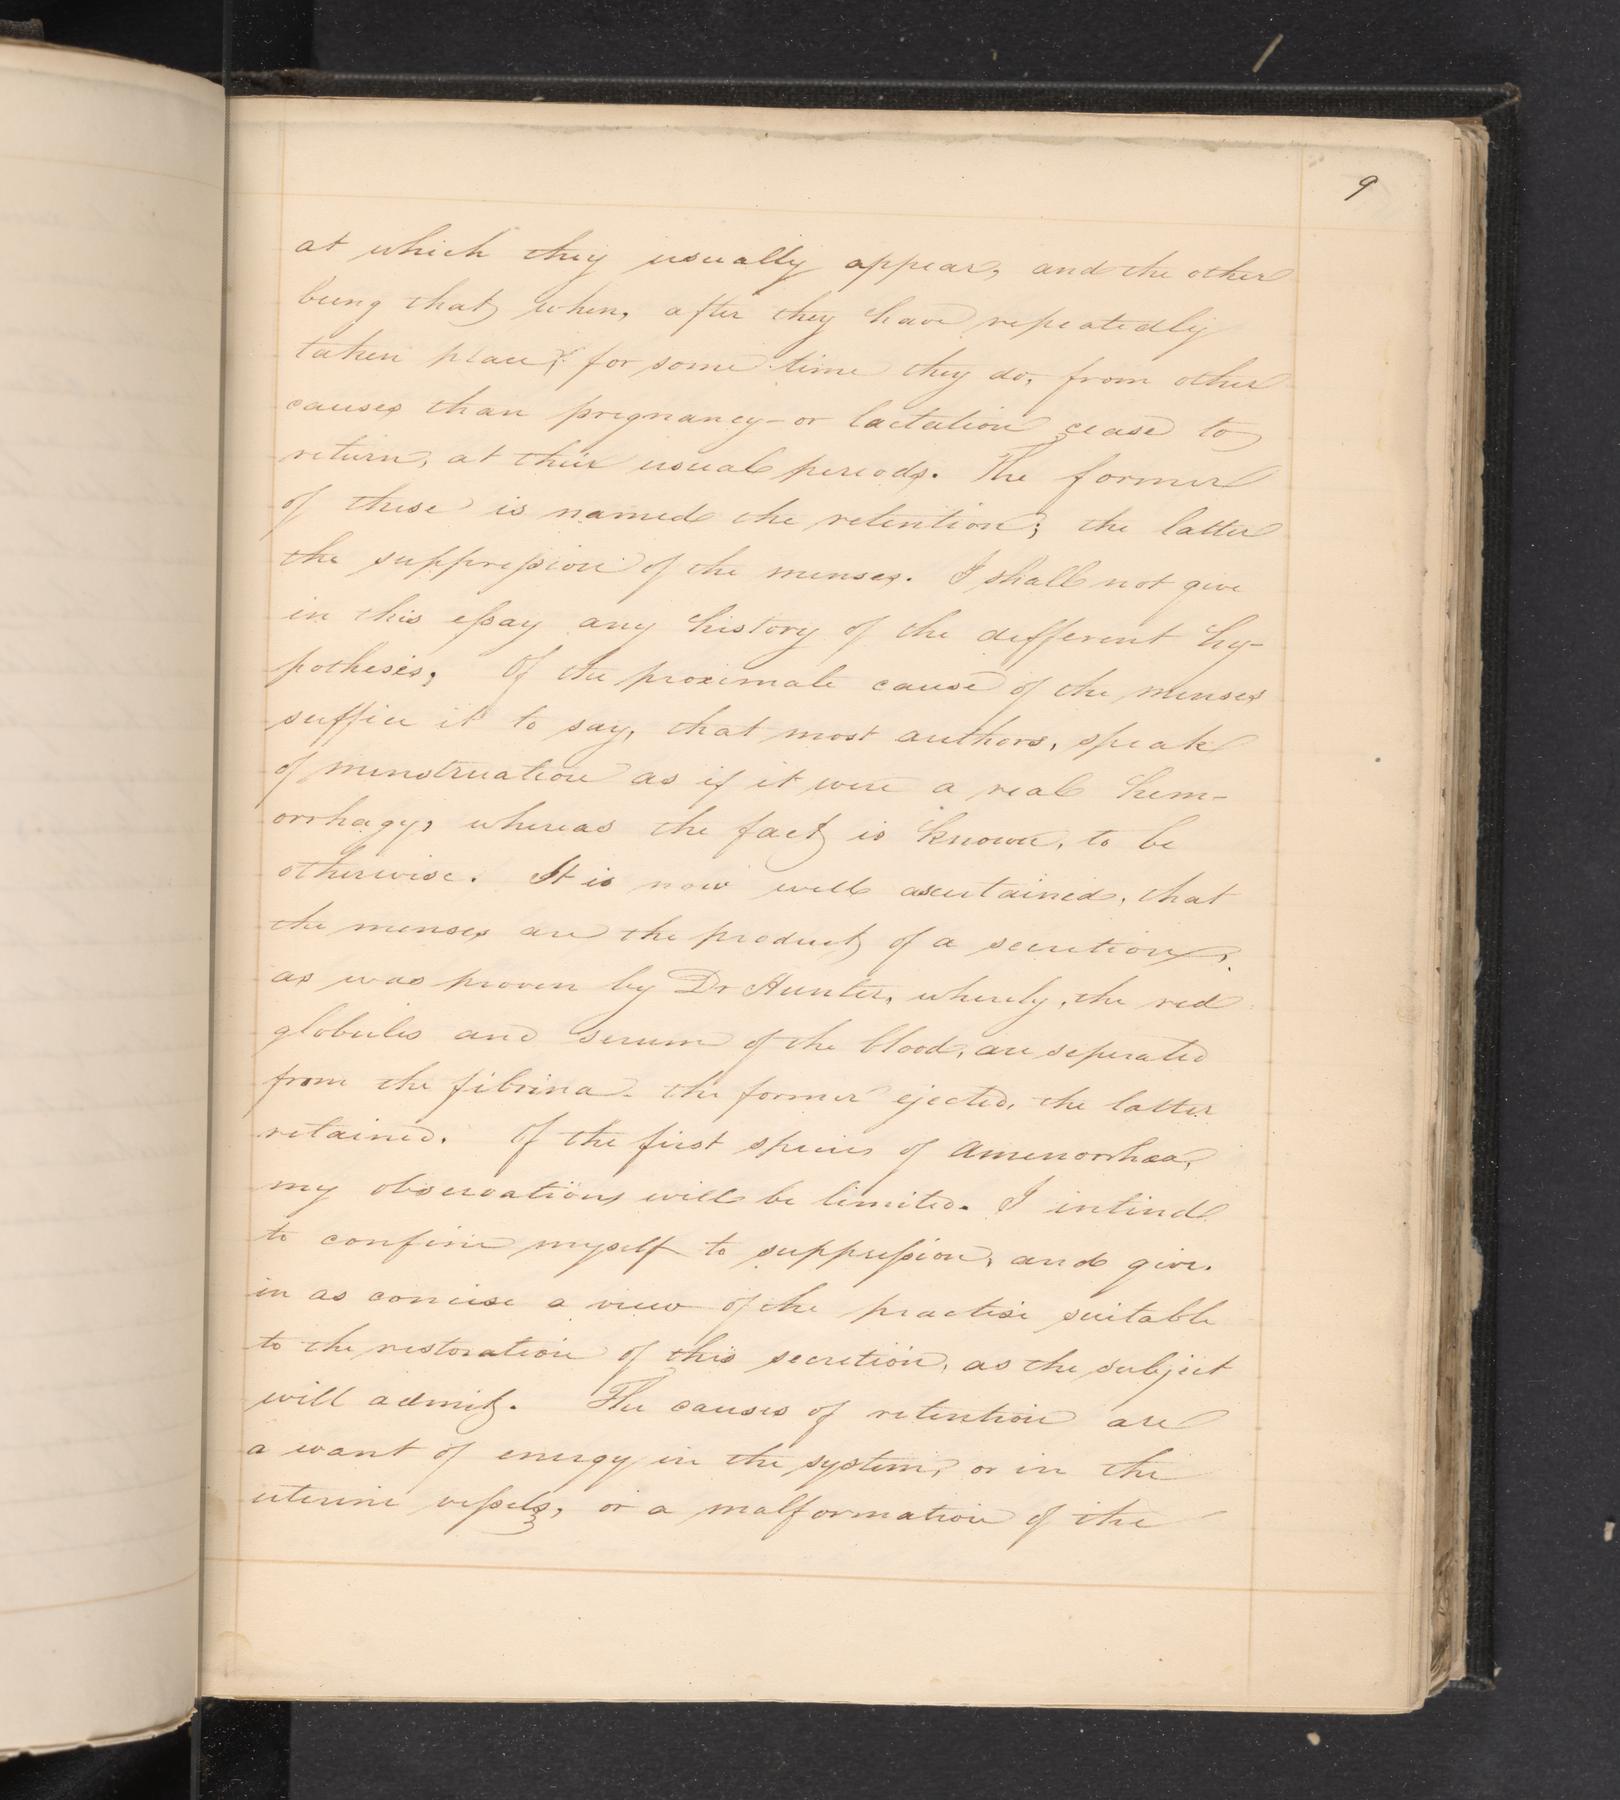 9
at which they usually appear, and the other
being that when, after they have repeatedly
taken place, for some time they do, from other
causes than pregnancy - or lactation cease to
return, at their usual periods. The former
of these is named the retention; the latter
the suppression of the menses. I shall not give
in this essay any history of the different hy-
pothesis, Of the proximate cause of the menses
suffice it to say, that most authors, speak
of menstruation as if it were a real hem-
orrhagy, whereas the fact is known, to be
otherwise. It is now well ascertained, that
the menses are the product of a secretion,
as was proven by Dr Hunter, whereby, the red
globules and serum of the blood, are seperated
from the fibrina - the former ejected, the latter
retained. Of the first species of Amenorrhœa,
my observations will be limited. I intend
to confine myself to suppression, and give.
in as concise a view of the practise suitable
to the restoration of this secretion, as the subject
will admit. The causes of retention are
a want of energy in the system, or in the
uterine vessels, or a malformation of the